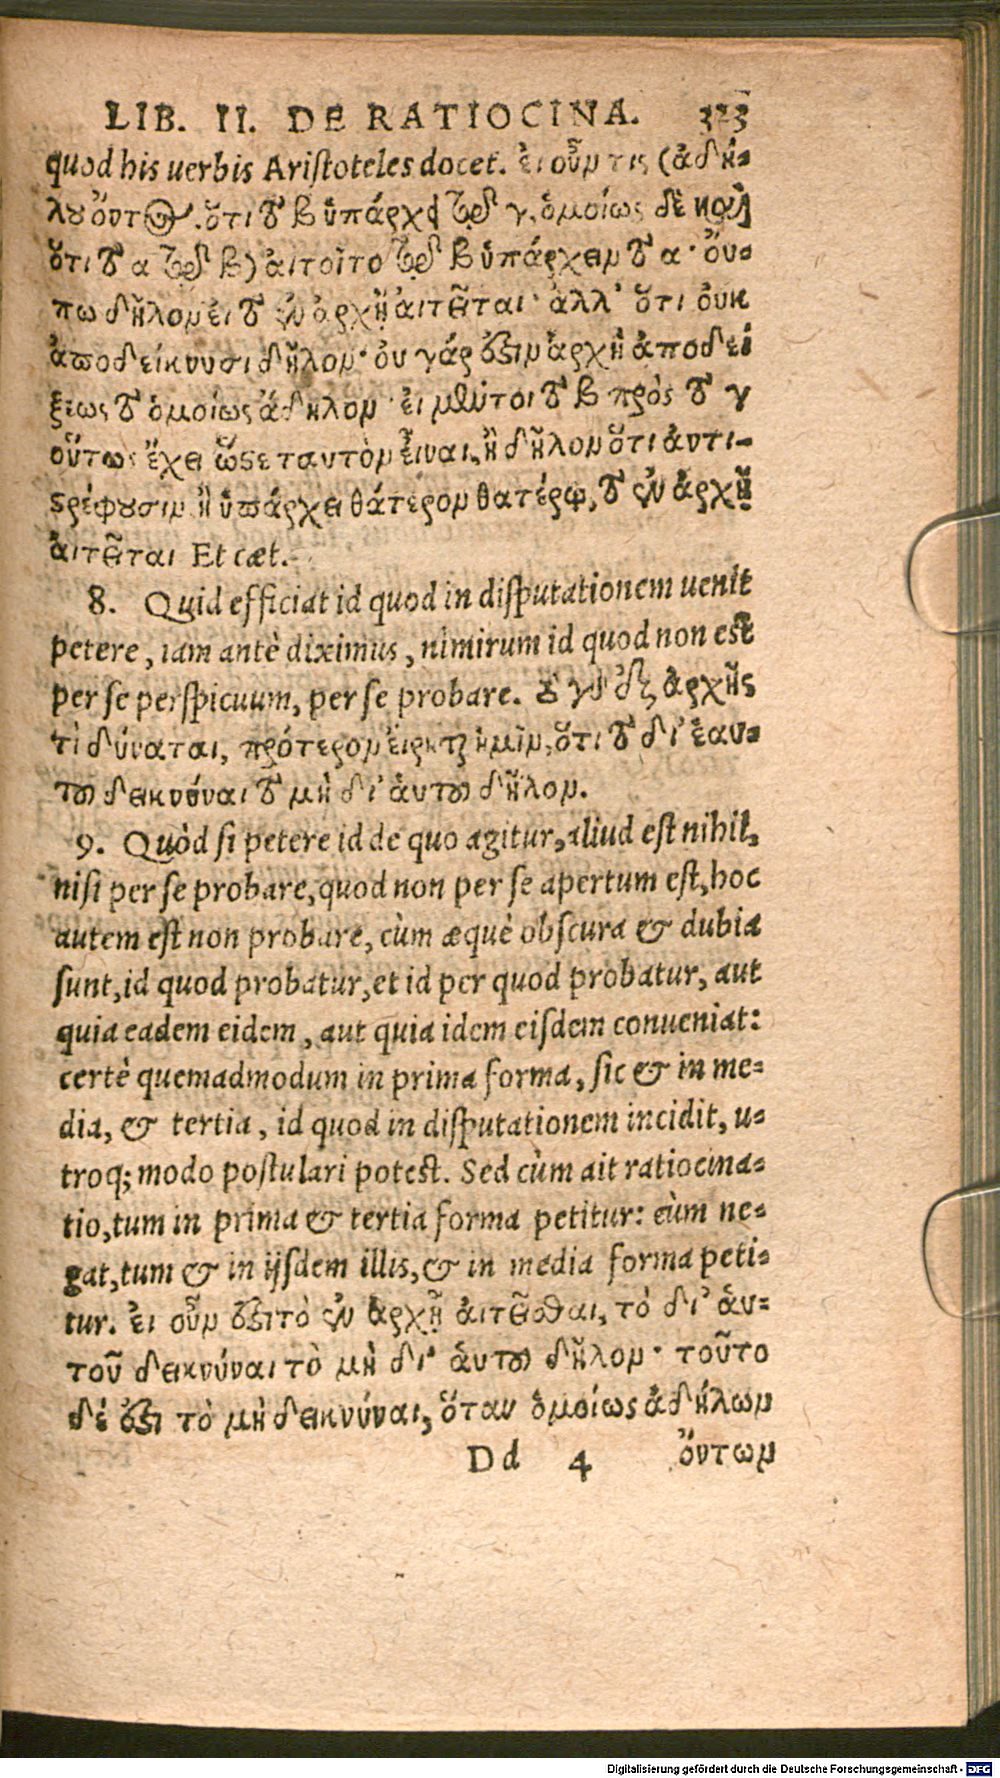 LIB. II. DE RATIOCINA. 323
quod his uerbis Aristoteles docet. εἰ οὖν τις (ἀδή-
λου ὄντος. ὅτι τὸ β ὑπάρχει τῷ γ, ὁμοίως δὲ καὶ
ὅτι τὸ α τῷ β) αἰτοῖτο τῷ β ὑπάρχειν τὸ α· οὔ-
πω δῆλον εἰ τὸ ἐν ἀρχῇ αἰτεῖται· ἀλλ' ὅτι οὐκ
ἀποδείκνυσι δῆλον· οὐ γάρ ἐστιν ἀρχὴ ἀποδεί
ξεως τὸ ὁμοίως ἄδηλον· εἰ μέντοι τὸ β πρὸς τὸ γ
οὕτως ἔχει ὥστε ταυτὸν εἶναι, ἢ δῆλον ὅτι ἀντι-
στρέφουσιν ἢ ὑπάρχει θάτερον θατέρῳ, τὸ ἐν ἀρχῇ
αἰτεῖται Et cæt.
8. Quid efficiat id quod in disputationem uenit
petere, iam antè diximus, nimirum id quod non est
per se perspicuum, per se probare. τὸ γὰρ ἐξ ἀρχῆς
τί δύναται, πρότερον εἴρηται ἡμῖν, ὅτι τὸ δι' ἑαυ-
τοῦ δεικνύναι τὸ μὴ δι' αὑτοῦ δῆλον.
9. Quòd si petere id de quo agitur, aliud est nihil,
nisi per se probare, quod non per se apertum est, hoc
autem est non probare, cùm æquè obscura & dubia
sunt, id quod probatur, et id per quod probatur, aut
quia eadem eidem, aut quia idem eisdem conueniat:
certè quemadmodum in prima forma, sic & in me-
dia, & tertia, id quod in disputationem incidit, u-
troq; modo postulari potest. Sed cùm ait ratiocina-
tio, tum in prima & tertia forma petitur: cùm ne-
gat, tum & in ijsdem illis, & in media forma peti-
tur. εἰ οὖν ἐστι τὸ ἐν ἀρχῇ αἰτεῖσθαι, τὸ δι' αὑ-
τοῦ δεικνύναι τὸ μὴ δι' αὑτοῦ δῆλον· τοῦτο
δέ ἐστι τὸ μὴ δεικνύναι, ὅταν ὁμοίως ἀδήλων
Dd 4 ὄντων
Digitalisierung gefördert durch die Deutsche Forschungsgemeinschaft - DFG